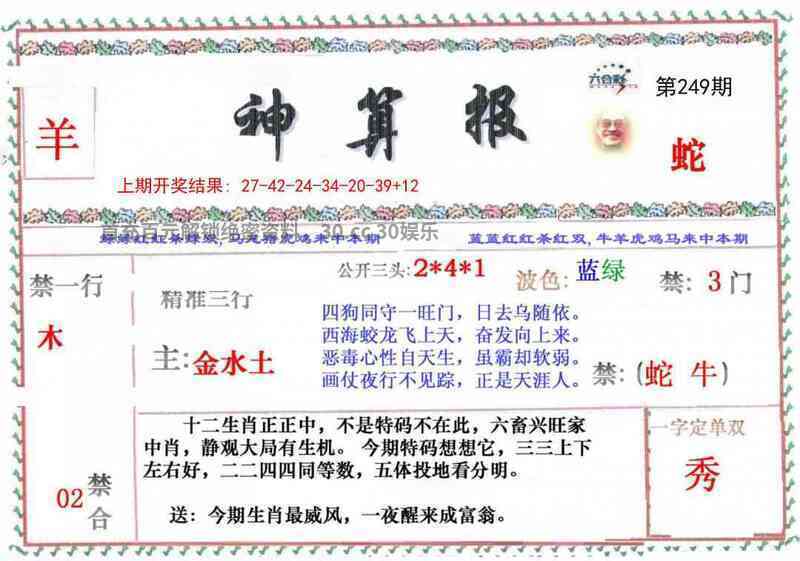 六合彩
第249期
羊
神算报
蛇
上期开奖结果：27-42-24-34-20-39+12
首充百元解锁绝密资料，30.cc 30娱乐
蓝蓝红红茶红双,牛羊虎鸡马来中本期
禁一行
木
精准三行
主:金水土
公开三头:2*4*1
波色:蓝绿
禁:3门
四狗同守一旺门，日去乌随依。
西海蛟龙飞上天，奋发向上来。
恶毒心性自天生，虽霸却软弱。
画仗夜行不见踪，正是天涯人。
禁:(蛇 牛)
02
禁合
十二生肖正正中，不是特码不在此，六畜兴旺家
中肖，静观大局有生机。 今期特码想想它，三三上下
左右好，二二四四同等数，五体投地看分明。
送：今期生肖最威风，一夜醒来成富翁。
一字定单双
秀